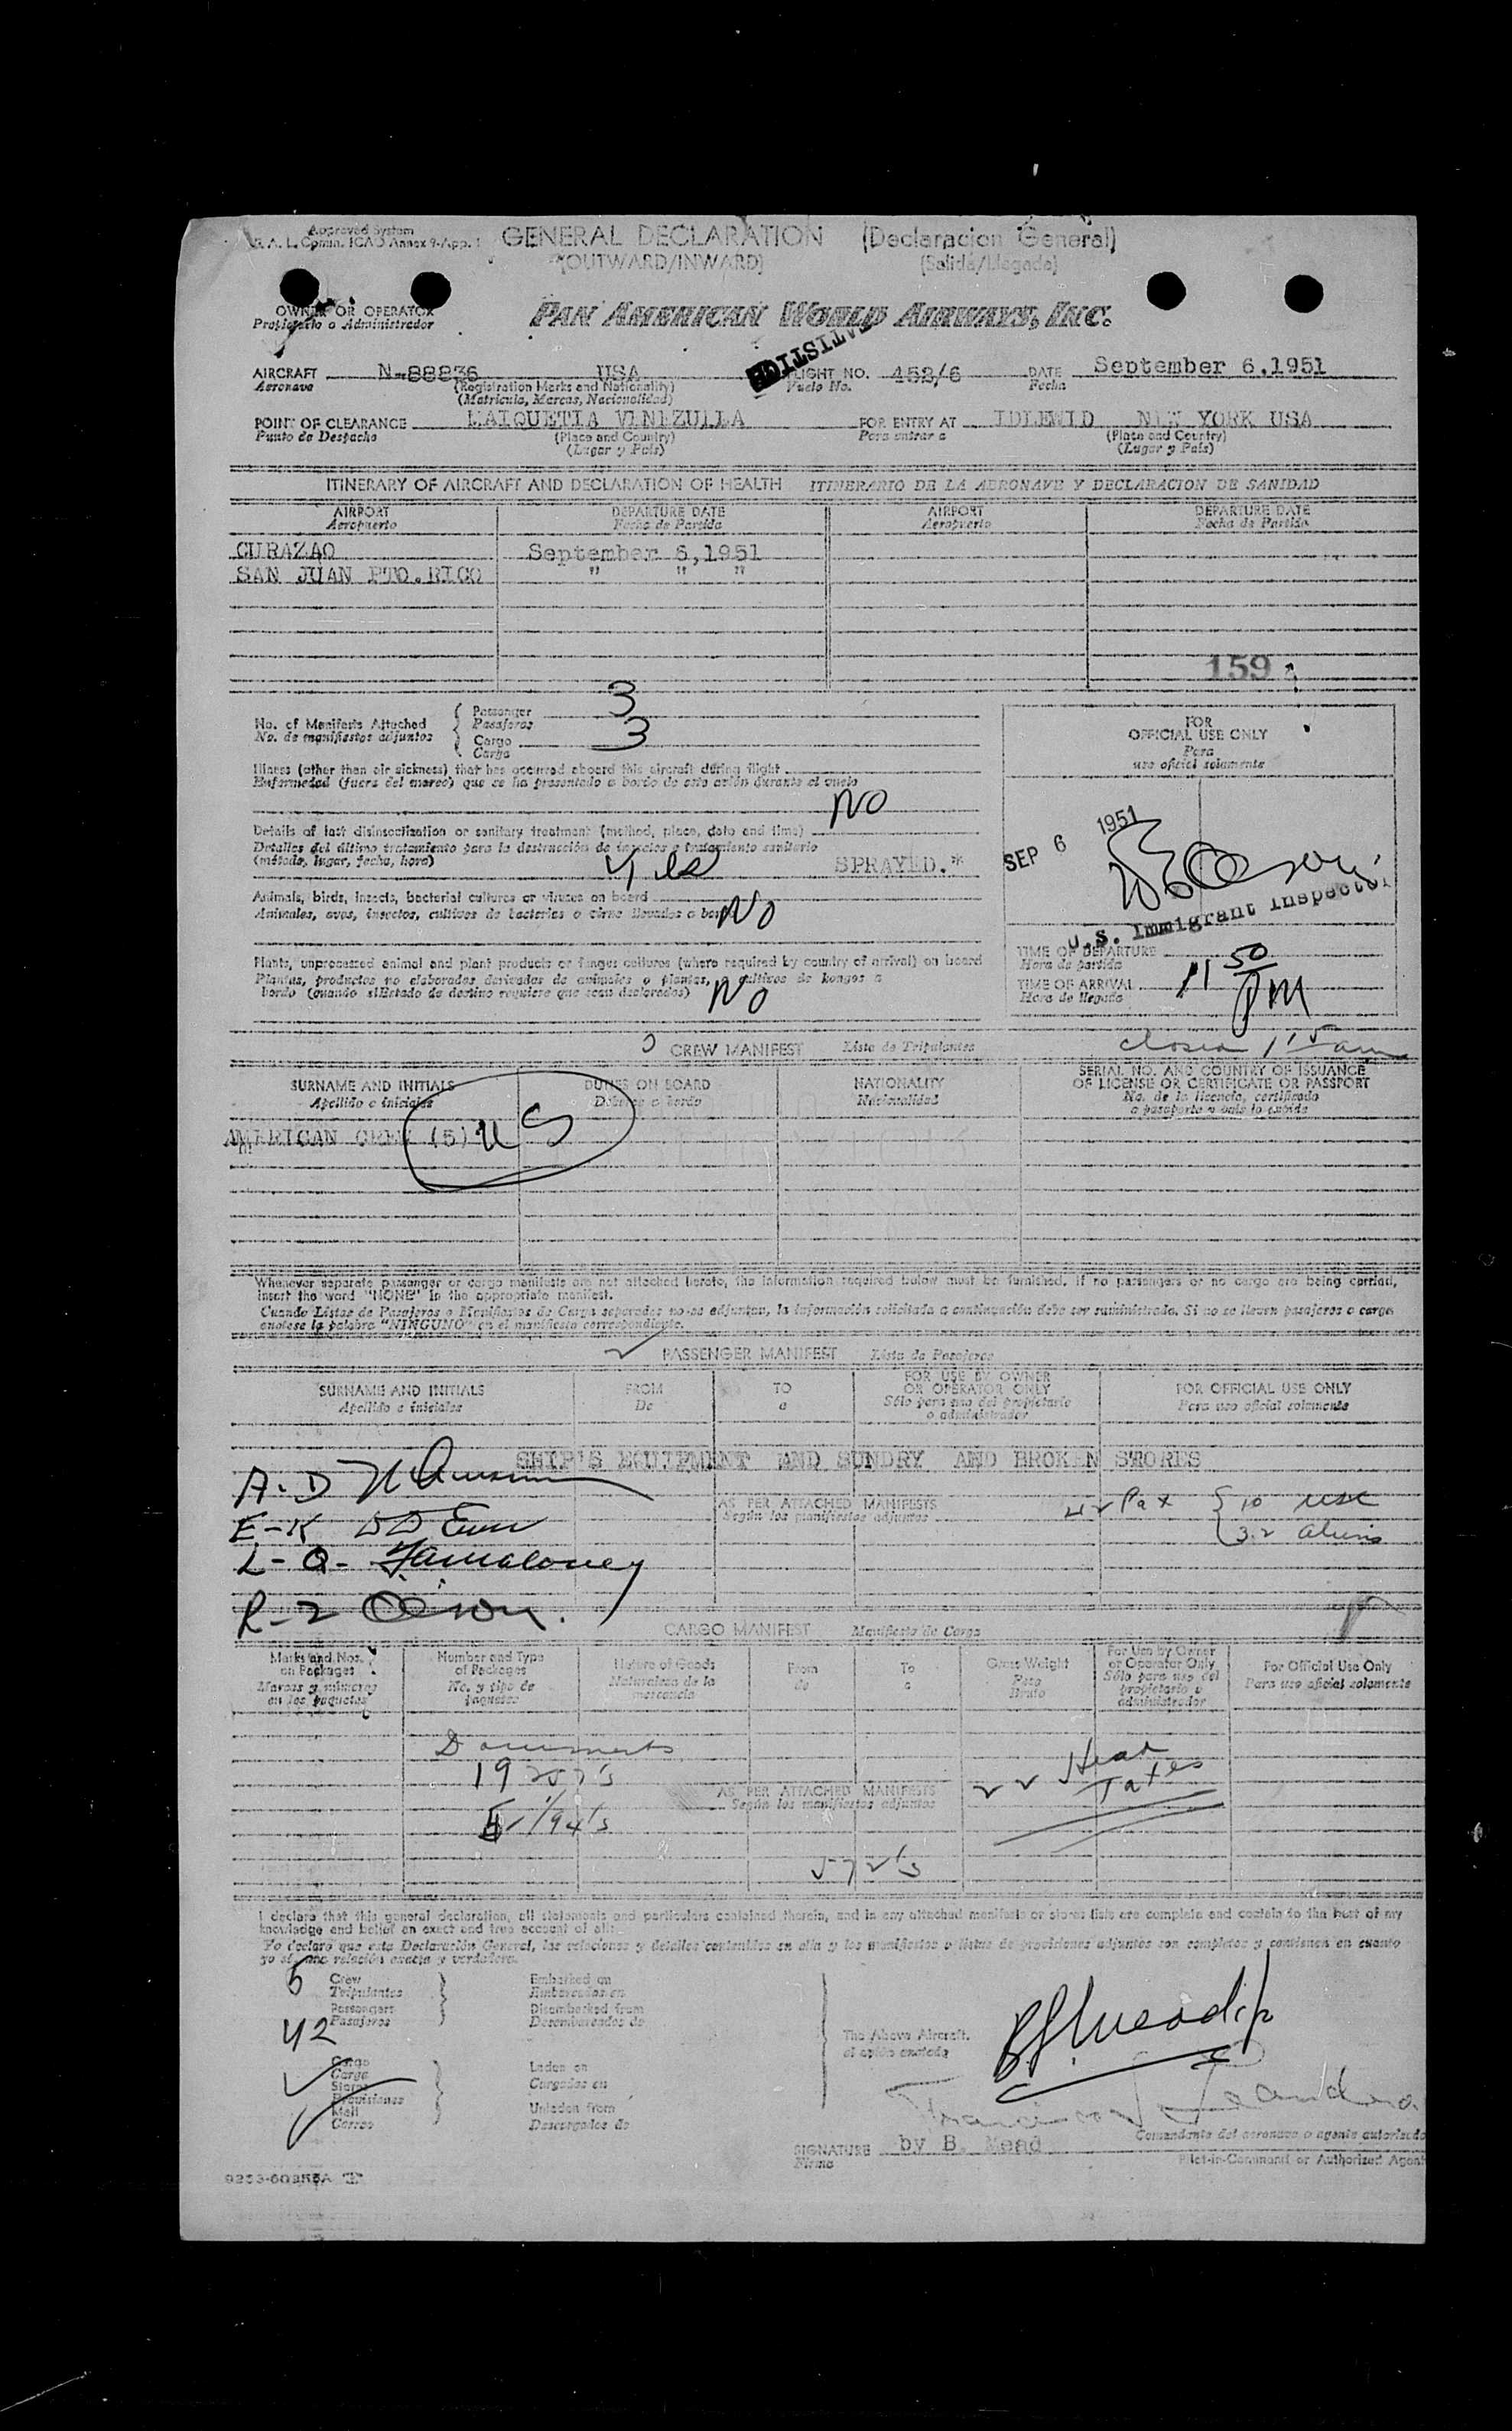 Approved System
GENERAL DECLARATION (Declaracion General)
(OUTWARD/INWARD) (Salida/Llegada)
OWNER OR OPERATOR
Propietario o Administrador
PAN AMERICAN WORLD AIRWAYS, INC.
STATISTICAL EDIT
AIRCRAFT N-88836 USA FLIGHT NO. 452/6 DATE September 6,1951
Aeronave (Registration Marks and Nationality) Vuelo No. Fecha
(Matricula, Marcas, Nacionalidad)
POINT OF CLEARANCE MAIQUETIA VENEZUELA FOR ENTRY AT IDLEWID NEW YORK USA
Punto de Despacho (Place and Country) Para entrar a (Place and Country)
(Lugar y Pais) (Lugar y Pais)
ITINERARY OF AIRCRAFT AND DECLARATION OF HEALTH ITINERARIO DE LA AERONAVE Y DECLARACION DE SANIDAD
AIRPORT DEPARTURE DATE AIRPORT DEPARTURE DATE
Aeropuerto Fecha de Partida Aeropuerto Fecha de Partida
CURAZAO September 6,1951
SAN JUAN PTO.RICO " " "
159
No. of Manifests Attached Passenger 3
No. de manifiestos adjuntos Pasajeros
Cargo 3
Carga
FOR
OFFICIAL USE ONLY
Para
uso oficial solamente
Illness (other than air sickness) that has occurred aboard this aircraft during flight
Enfermedad (fuera del mareo) que se ha presentado a bordo de este avión durante el vuelo
NO
Details of last disinsectization or sanitary treatment (method, place, date and time)
Detalles del último tratamiento para la destrucción de insectos o tratamiento sanitario
(método, lugar, fecha, hora) Yes SPRAYED.*
SEP 6 1951
U.S. Immigrant Inspector
Animals, birds, insects, bacterial cultures or viruses on board
Animales, aves, insectos, cultivos de bacterias o virus llevados a bordo NO
Plants, unprocessed animal and plant products or fungus cultures (where required by country of arrival) on board
Plantas, productos no elaborados derivados de animales o plantas, o cultivos de hongos a
bordo (cuando el Estado de destino requiere que sean declarados) NO
TIME OF DEPARTURE
Hora de partida
TIME OF ARRIVAL 11 50 PM
Hora de llegada
CREW MANIFEST Lista de Tripulantes
SURNAME AND INITIALS DUTIES ON BOARD NATIONALITY SERIAL NO. AND COUNTRY OF ISSUANCE
OF LICENSE OR CERTIFICATE OR PASSPORT
Apellido e iniciales Deberes a bordo Nacionalidad No. de la licencia, certificado
o pasaporte y país lo expide
AMERICAN CREW (5) US
Whenever separate passenger or cargo manifests are not attached hereto, the information required below must be furnished. If no passengers or no cargo are being carried,
insert the word "NONE" in the appropriate manifest.
Cuando Listas de Pasajeros o Manifiestos de Carga separados no se adjuntan, la información solicitada a continuación debe ser suministrada. Si no se llevan pasajeros o carga
anótese la palabra "NINGUNO" en el manifiesto correspondiente.
PASSENGER MANIFEST Lista de Pasajeros
SURNAME AND INITIALS FROM TO FOR USE BY OWNER
OR OPERATOR ONLY FOR OFFICIAL USE ONLY
Apellido e iniciales De a Sólo para uso del propietario
o administrador Para uso oficial solamente
SHIP'S EQUIPMENT AND SUNDRY AND BROKEN STORES
A-D
E-K
L-Q-
R-Z Olson.
AS PER ATTACHED MANIFESTS
Según los manifiestos adjuntos
42 Pax 10 USC
32 aliens
CARGO MANIFEST Manifiesto de Carga
Marks and Nos. on Packages Number and Type of Packages Nature of Goods From To Gross Weight For Use by Owner or Operator Only For Official Use Only
Marcas y números en los paquetes No. y tipo de paquetes Naturaleza de la mercancia de a Peso Bruto Sólo para uso del propietario o administrador Para uso oficial solamente
Documents
19 257's
I/94's
AS PER ATTACHED MANIFESTS
Según los manifiestos adjuntos
22 Head Taxes
572's
I declare that this general declaration, all statements and particulars contained therein, and in any attached manifests or stores lists are complete and contain to the best of my
knowledge and belief an exact and true account of all:
Yo declaro que esta Declaración General, las relaciones y detalles contenidos en ella y los manifiestos o listas de provisiones adjuntos son completos y contienen en cuanto
yo sé una relación exacta y verdadera.
5 Crew Embarked on
Tripulantes Embarcados en
Passengers Disembarked from
42 Pasajeros Desembarcados de
Cargo Laden on
Carga Cargados en
Stores
Provisiones
Mail Unladen from
Correo Descargados de
The Above Aircraft.
el avión anotado
SIGNATURE by B. Mead
Firma
Comandante del aeronave o agente autorizado
Pilot-in-Command or Authorized Agent